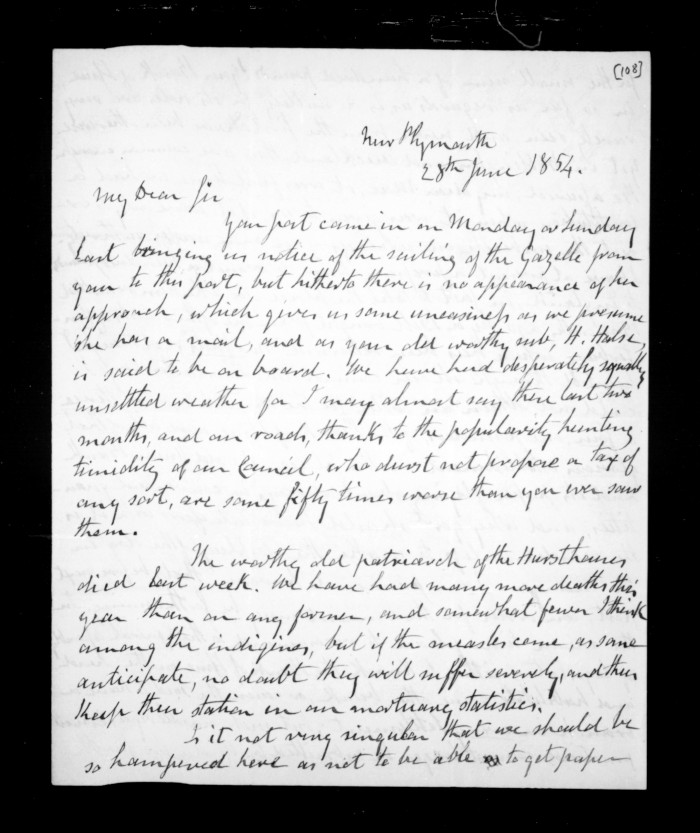 [108]
New Plymouth
28th June 1854.
My Dear Sir
Your post came in on Monday or Sunday
last bringing us notice of the sailing of the Gazelle from
your to this port, but hitherto there is no appearance of her
approach, which gives us some uneasiness as we presume
she has a mail, and as your old worthy sub, H. Halse,
is said to be on board. We have had desperately squally
unsettled weather for I may almost say these last two
months, and our roads, thanks to the popularity hunting
timidity of our Council, who durst not propose a tax of
any sort, are some fifty times worse than you ever saw
them.
The worthy old patriarch of the Hursthouses
died last week. We have had many more deaths this
year than on any former, and somewhat fewer I think
among the indigines, but if the measles come, as some
anticipate, no doubt they will suffer severely, and then
keep their station in our mortuary statistics.
Is it not very singular that we should be
so hampered here as not to be able to get paper